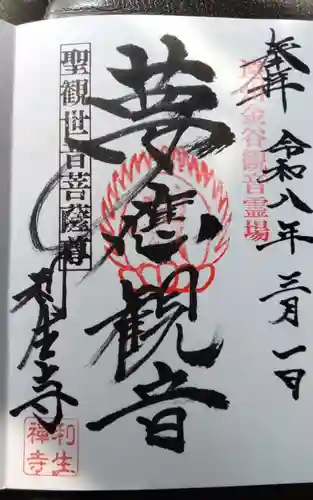 奉拝
令和八年三月一日
金谷観音霊場
夢應観音
聖観世音菩薩尊
利生寺
利生禅寺